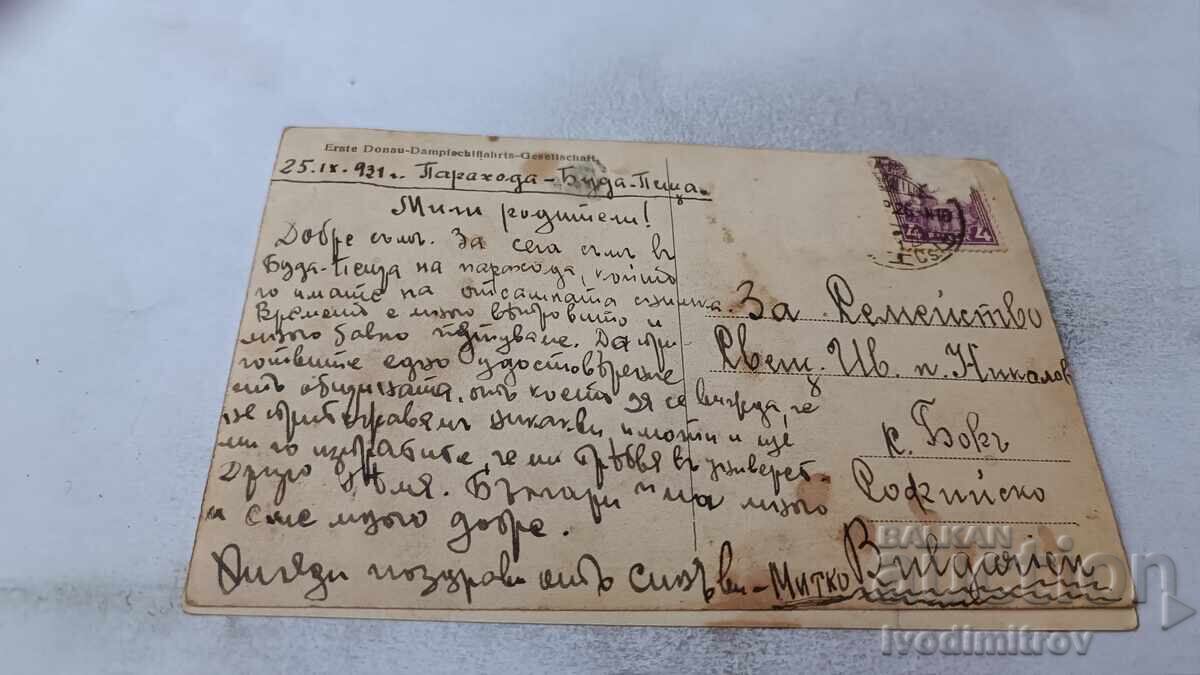 Erste Donau-Dampfschiffahrts-Gesellschaft.
25.IX.921г. Парахода-Буда-Пеща.
Мили родители!
Добре съмъ. За сега съмъ въ
Буда-Пеща на парахода, който
го имате на отсамната снимка.
Времето е много вѣтровито и
много бавно пѫтуваме. Да при-
готвите едно удостовѣрение
отъ общината, отъ което да се вижда, че
не притежавамъ никакви имоти и ще
ми го изпратите, че ми трѣбва въ универст.
Друго нѣма. Българи има много
и сме много добре.
поздрави отъ синъ ви - Митко
За Семейство
Свещ. Ив. п. Николов
с. Бокъ
Софийско
Bulgarien
BALKAN
auction
ivodimitrov